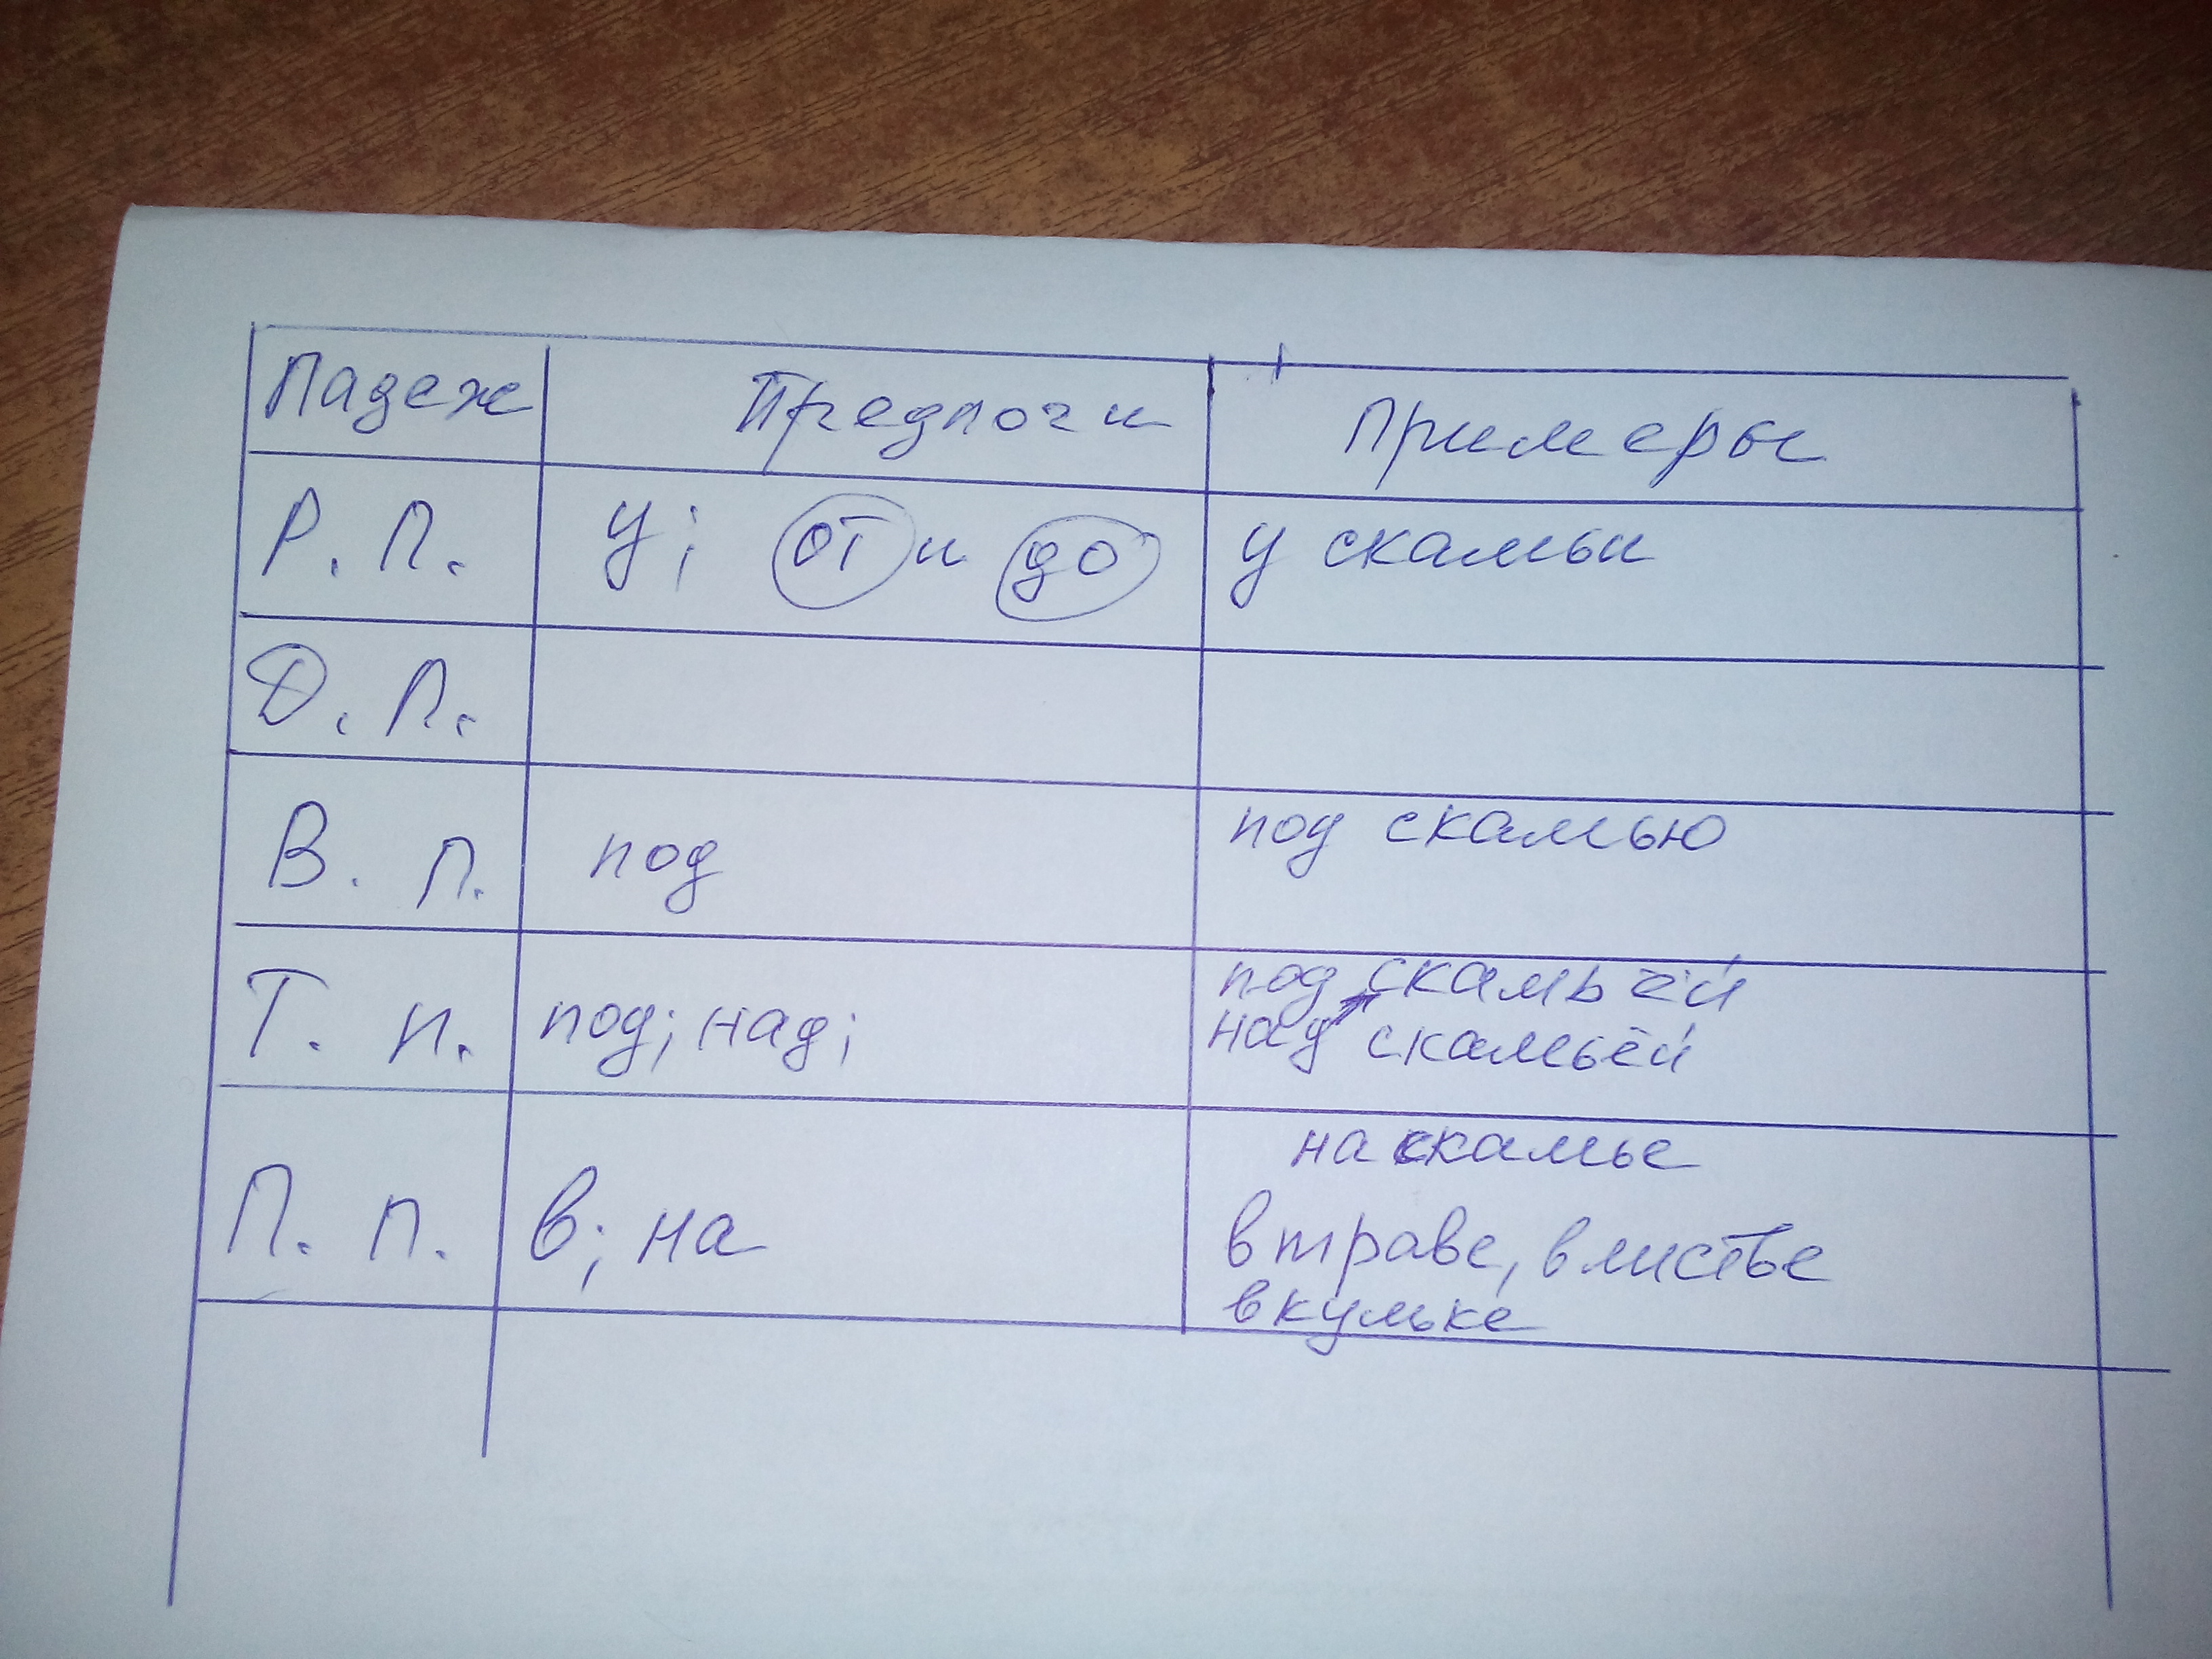 Падеж Предлоги Примеры
Р. П. у; от и до у скамьи
Д. П.
В. п. под под скамью
Т. п. под; над; под скамьёй
над скамьёй
на скамье
П. п. в; на в траве, в листве
в кульке